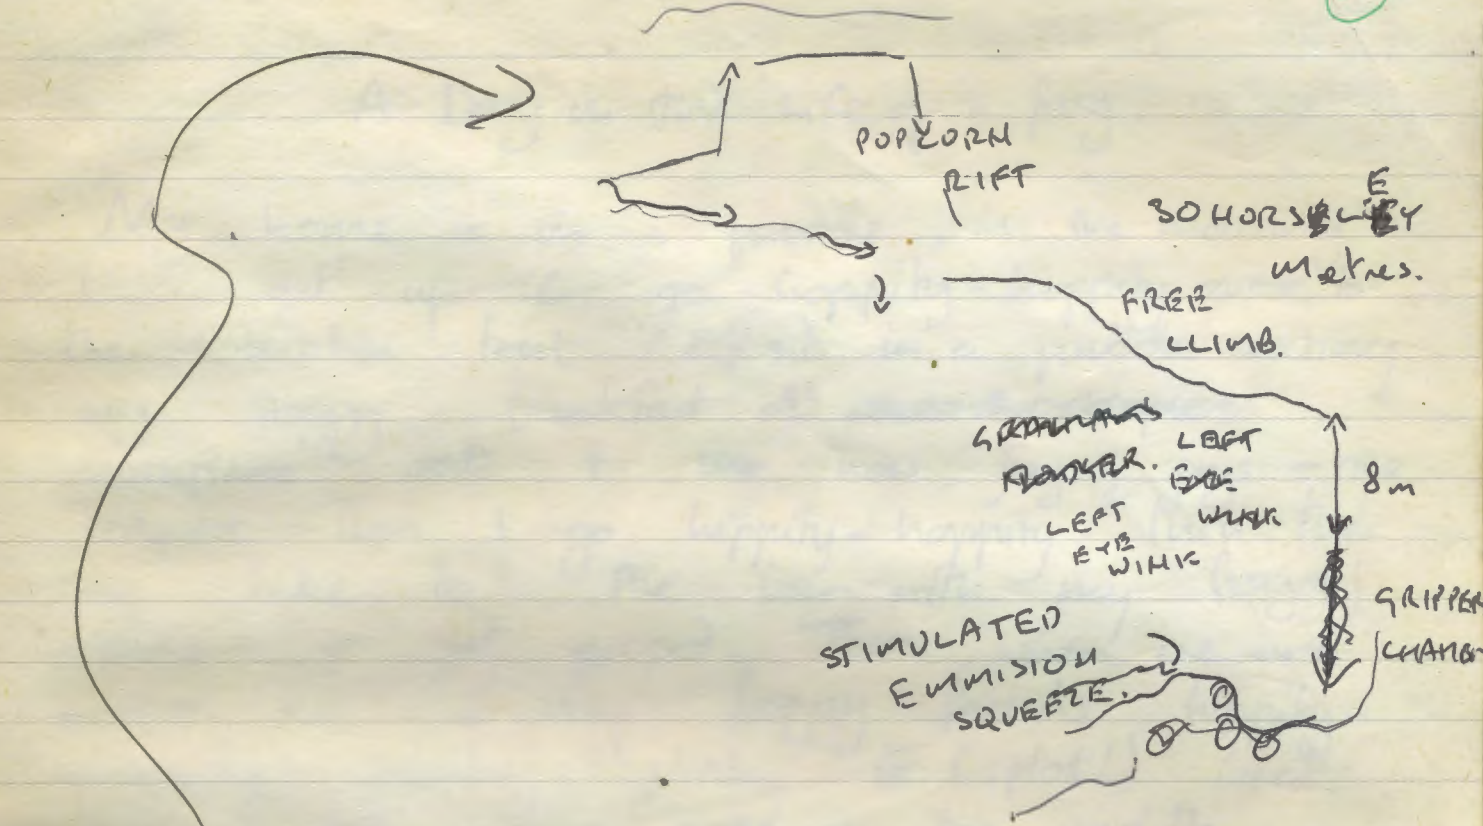 POPCORN
RIFT
30 HORSELEY
Metres.
FREE
CLIMB.
LEFT
EYE
WINK
8m
LEFT
EYE
WINK
GRIPPER
CHAMB
STIMULATED
EMMISION
SQUEEZE.